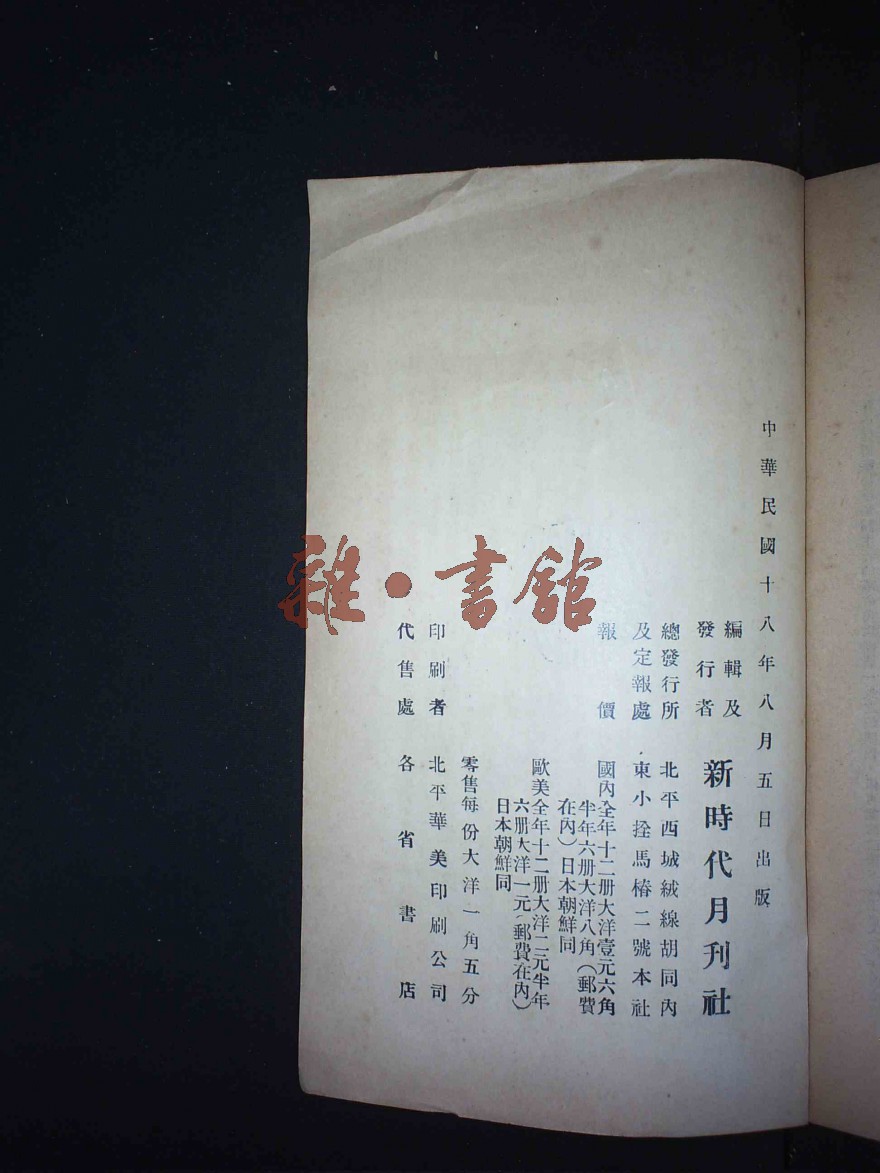 中華民國十八年八月五日出版
編輯及
發行者
新時代月刊社
總發行所
及定報處
北平西城絨線胡同內
東小拴馬樁二號本社
報價
國內全年十二册大洋壹元六角
半年六册大洋八角(郵費
在內)日本朝鮮同
歐美全年十二册大洋二元半年
六册大洋一元(郵費在內)
日本朝鮮同
零售每份大洋一角五分
印刷者 北平華美印刷公司
代售處 各省書店
雜·書館